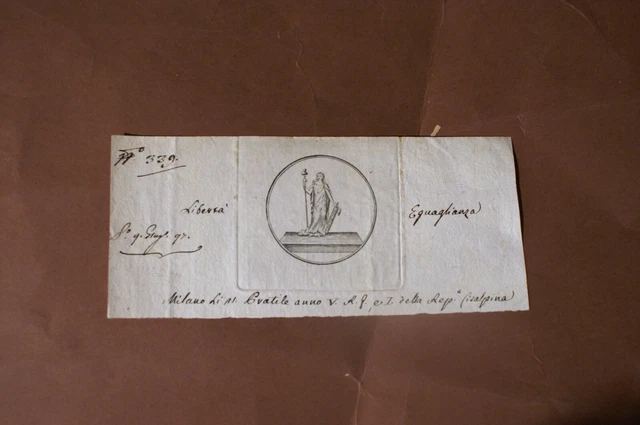 339.
Libertà Eguaglianza
Milano Li 21 Pratile anno V. R. f. e I. della Rep.ª Cisalpina